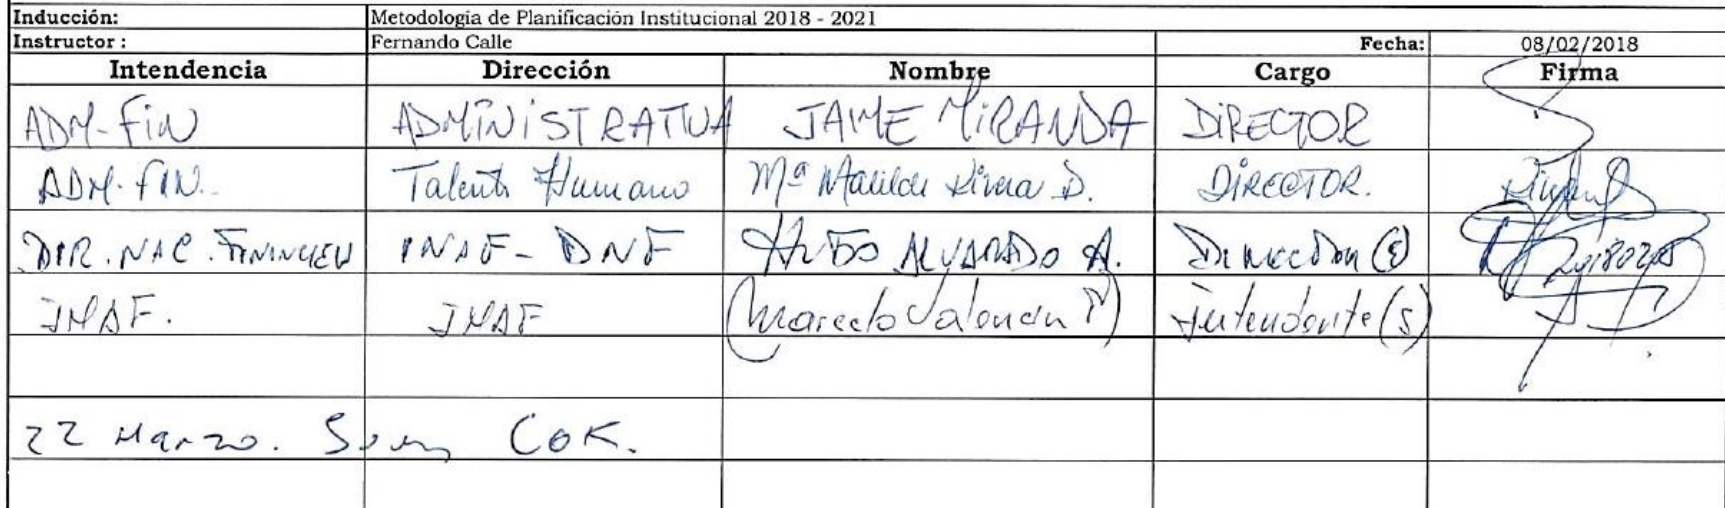 Inducción: Metodología de Planificación Institucional 2018 - 2021
Instructor : Fernando Calle Fecha: 08/02/2018
Intendencia Dirección Nombre Cargo Firma
ADM-FiN ADMINISTRATIVA JAIME MIRANDA DIRECTOR
ADM. FIN. Talento Humano Mª Matilde D. DIRECTOR.
DIR. NAC. INAF - DNF HUGO ALVARADO A. (E)
INAF. INAF Marcelo Valencia Intendente (S)
22 Marzo. COK.